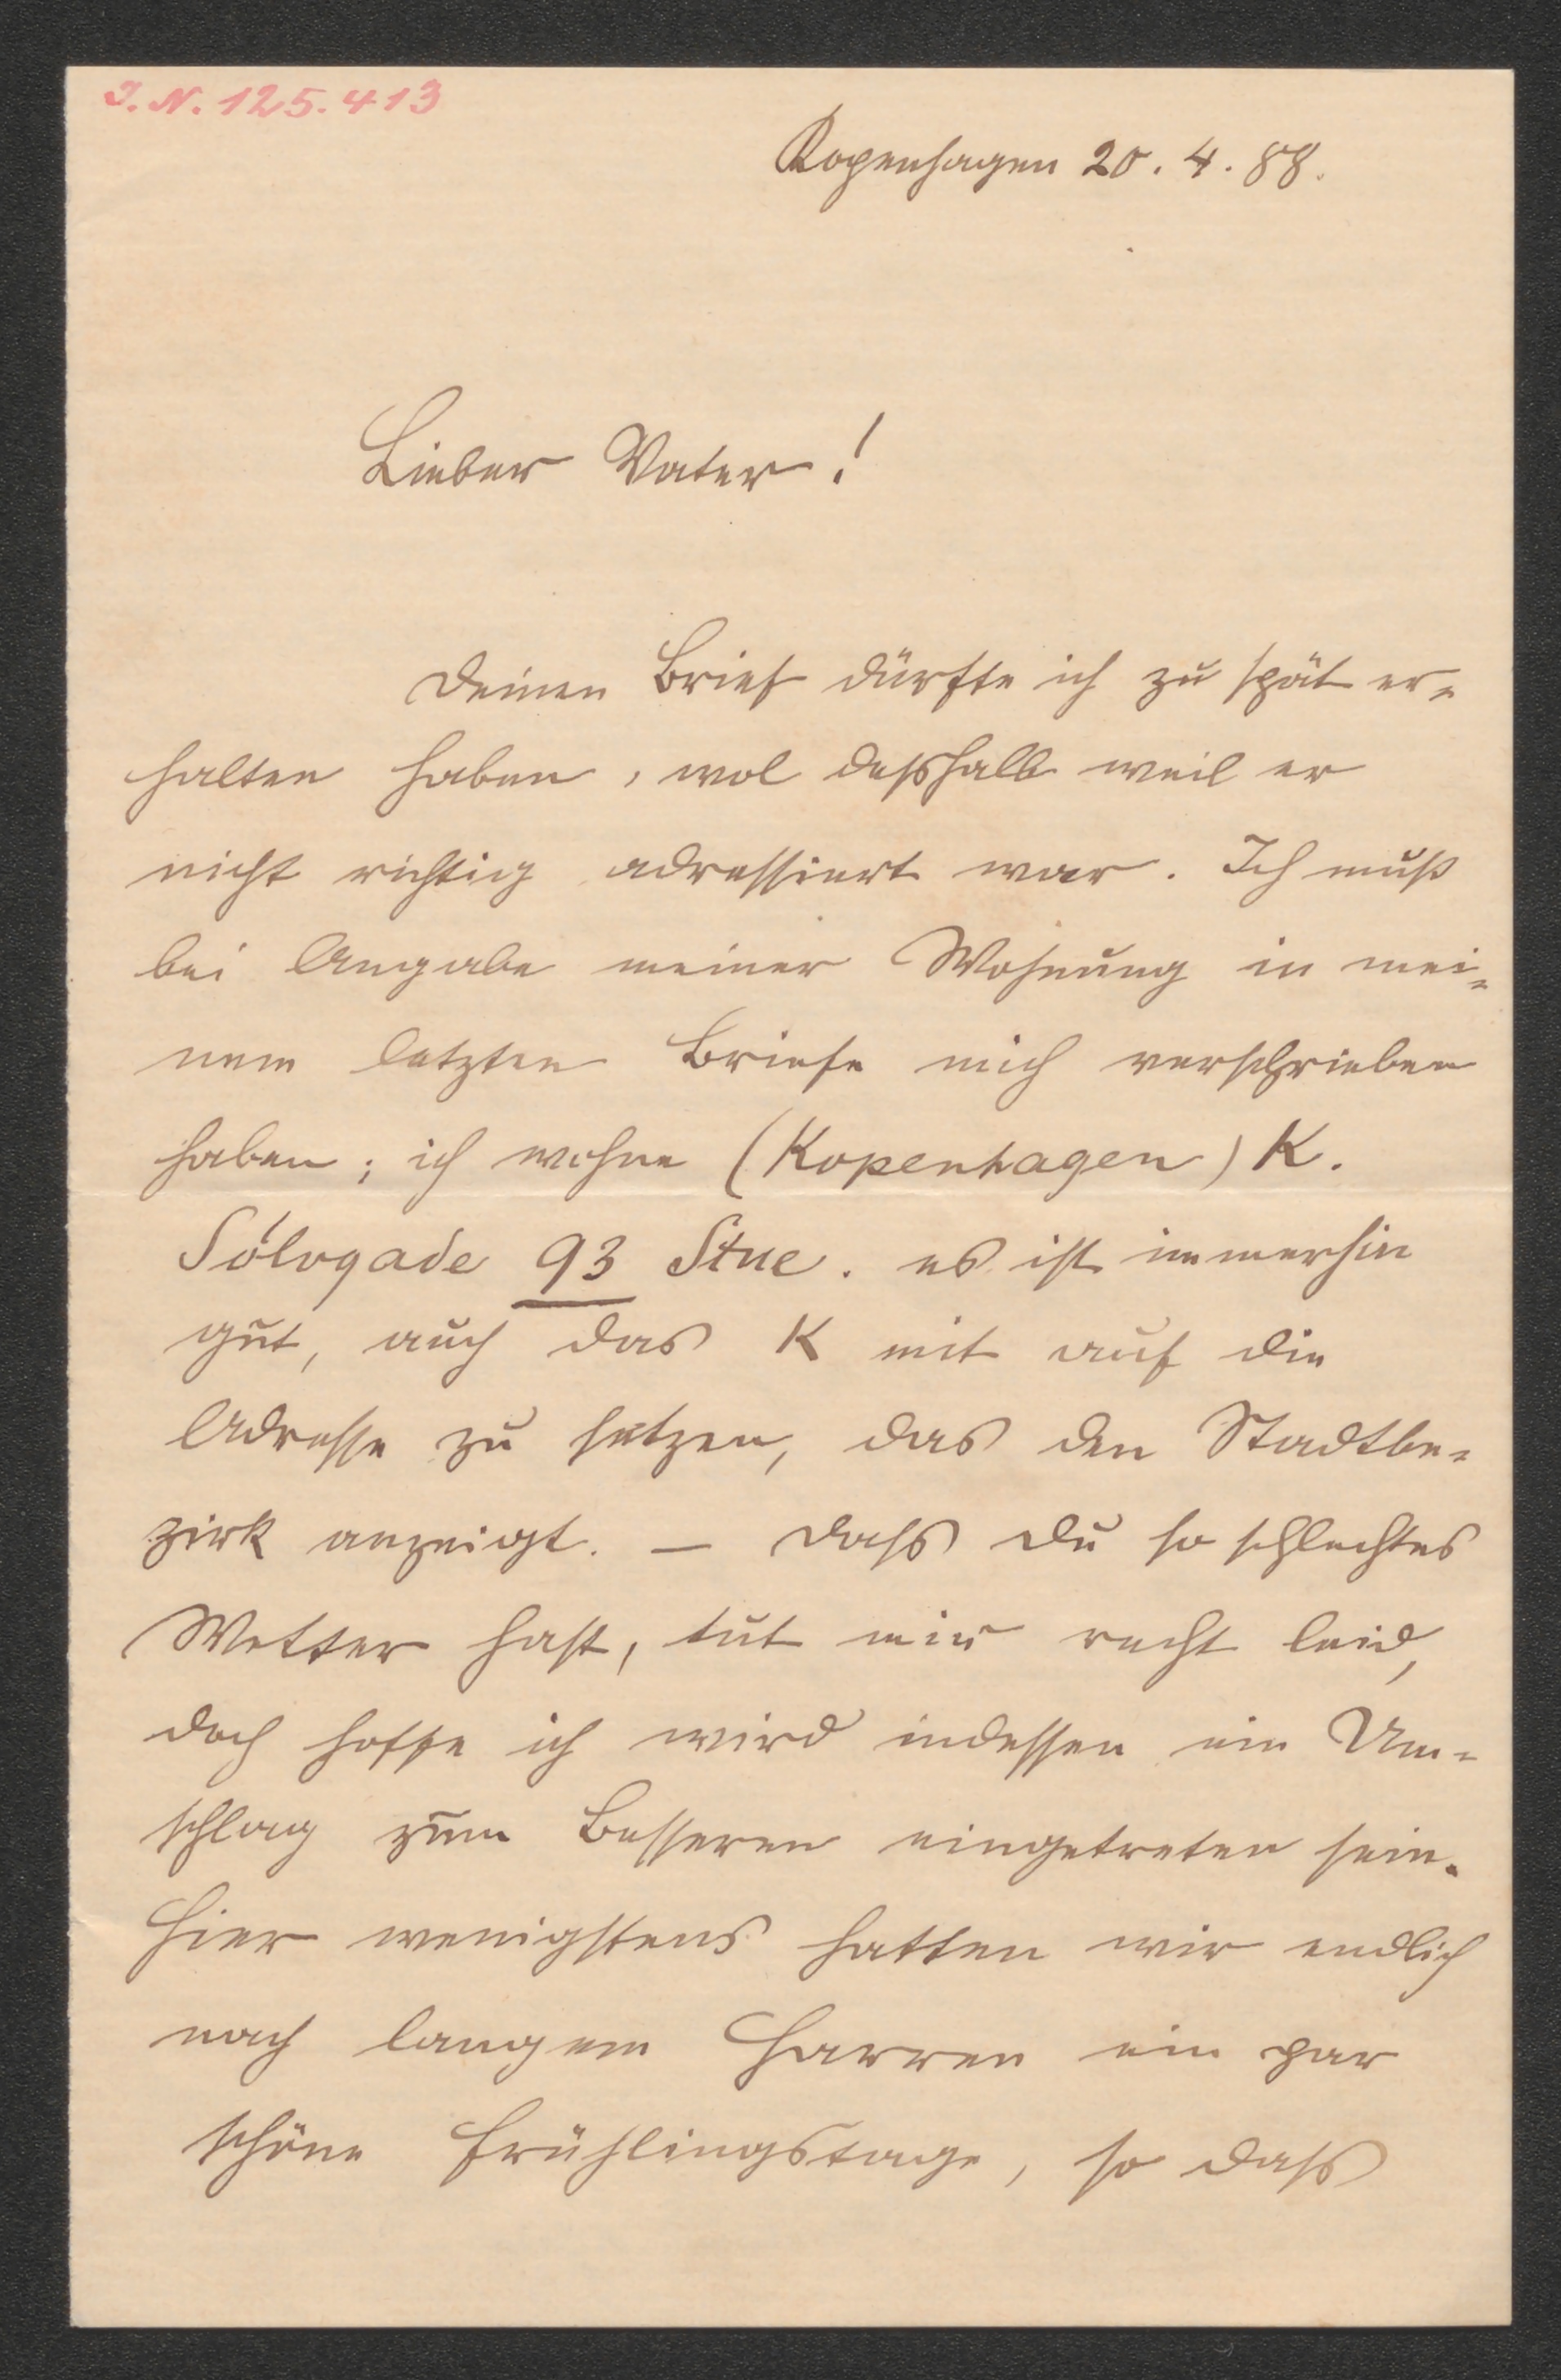 I. N. 125.413
Kopenhagen 20. 4. 88.
Lieber Vater!
Deinen Brief dürfte ich zu spät er-
halten haben, wol deßhalb weil er
nicht richtig adressiert war. Ich muß
bei Angabe meiner Wohnung in mei-
nem letzten Briefe mich verschrieben
haben; ich wohne (Kopenhagen) K.
Sölvgade 93 Stue. es ist immerhin
gut, auch das K mit auf die
Adresse zu setzen, das den Stadtbe-
zirk anzeigt. — Dass Du so schlechtes
Wetter hast, tut mir recht leid,
doch hoffe ich wird indessen ein Um-
schlag zum Besseren eingetreten sein.
Hier wenigstens hatten wir endlich
nach langem Harren ein par
schöne Frühlingstage, so dass